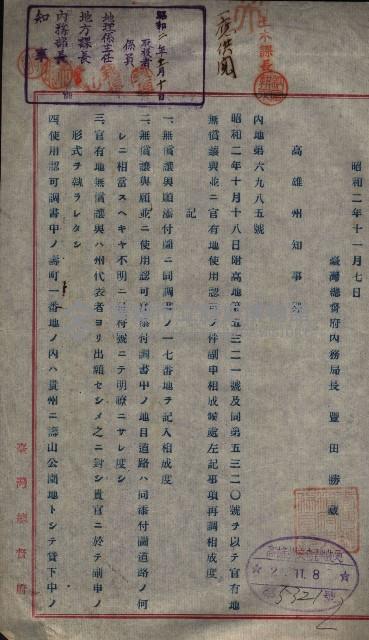 昭和二年十一月七日
臺灣總督府內務局長 豐田勝藏
高雄州知事殿
內地第六九八五號
昭和二年十月十八日附高地第五三二一號及同第五三二〇號ヲ以テ官有地
無償讓與並ニ官有地使用認可ノ件副申相成候處左記事項再調相成度
記
一、無償讓與願添付圖ニ同調書ノ一七番地ヲ記入相成度
二、無償讓與願並ニ使用認可願添付調書中ノ地目道路ハ同添付圖道路ノ何
レニ相當スヘキヤ不明ニ付符號ニテ明瞭ニサレ度シ
三、官有地無償讓與ハ州代表者ヨリ出願セシメ之ニ對シ貴官ニ於テ副申ノ
形式ヲ執ラレタシ
四、使用認可調書中ノ壽町一番地ノ內ハ貴州ニ壽山公園地トシテ貸下中ノ
臺灣總督府
土木課長
供閱
昭和二年十一月十日
取扱者
係員
地理係主任
地方課長
內務部長
知事
2.11.8
5321